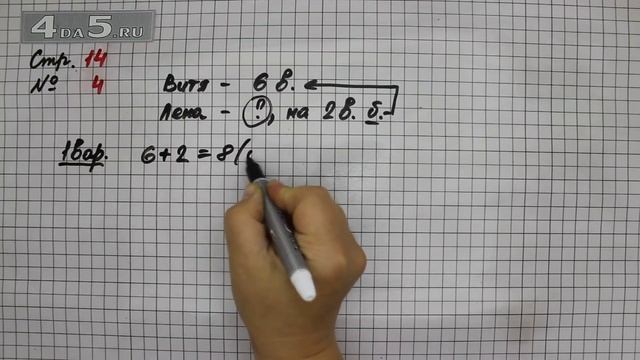 4DA5.RU
Стр. 14
№ 4
Витя - 6 в.
Лена - ?, на 2 в. б.
1 вар. 6+2=8(